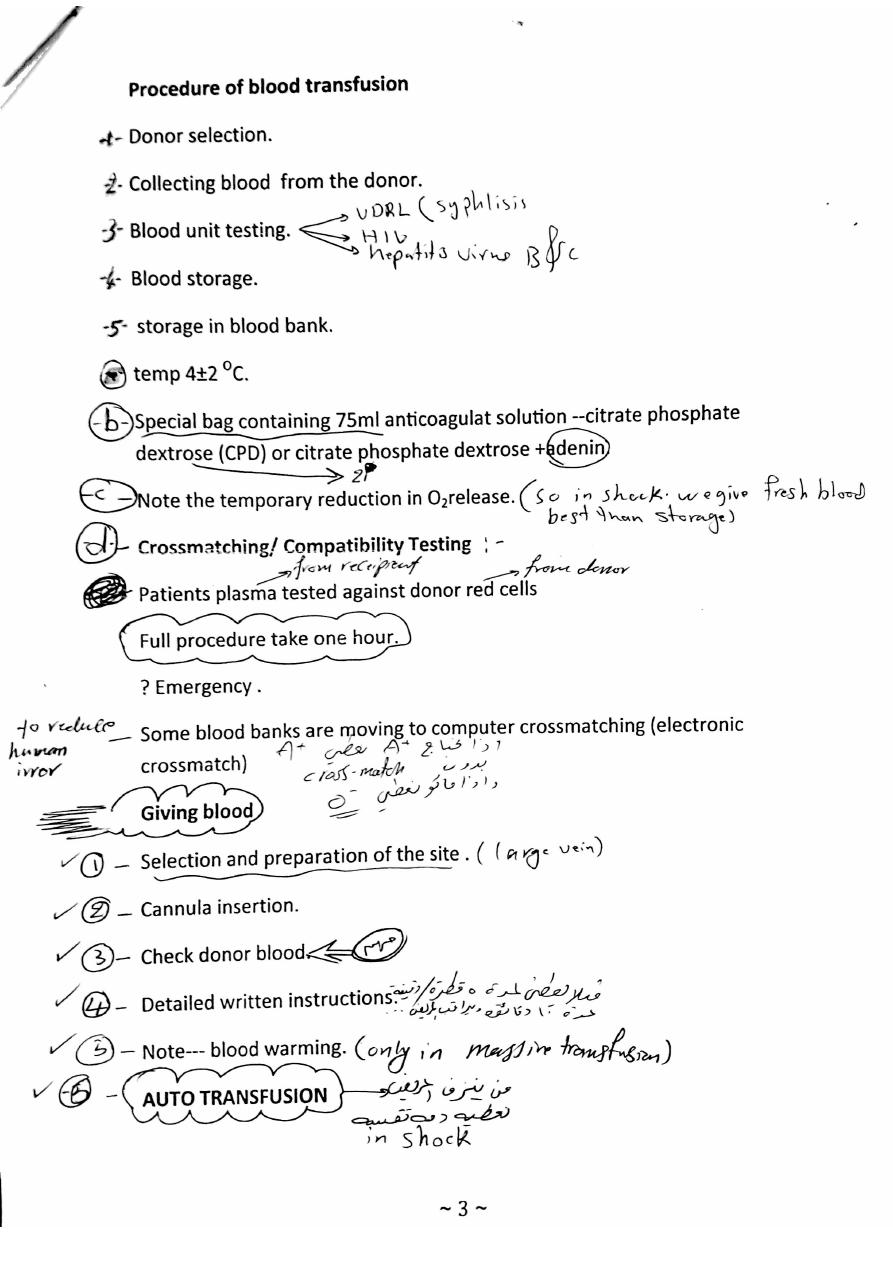 Procedure of blood transfusion
-1- Donor selection.
-2- Collecting blood from the donor.
VDRL (syphlisis
-3- Blood unit testing.
HIV
hepatits virus B & C
-4- Blood storage.
-5- storage in blood bank.
temp 4±2 °C.
-b- Special bag containing 75ml anticoagulat solution --citrate phosphate
dextrose (CPD) or citrate phosphate dextrose +adenin
-c- Note the temporary reduction in O₂release. (So in shock. we give fresh blood
best than storage)
-d- Crossmatching/ Compatibility Testing :-
from recepient from donor
Patients plasma tested against donor red cells
Full procedure take one hour.
? Emergency .
to reduce
human
irror
Some blood banks are moving to computer crossmatching (electronic
crossmatch)
اذا يحتاج A+ نعطي A+
بدون cross-match
نعطي O-
Giving blood
1 - Selection and preparation of the site . (large vein)
2 - Cannula insertion.
3 - Check donor blood.
4 - Detailed written instructions.
5 - Note--- blood warming. (only in massive transfusion)
6 - AUTO TRANSFUSION
من ينزف المريض
نعطيه دمه نفسه
in shock
~ 3 ~